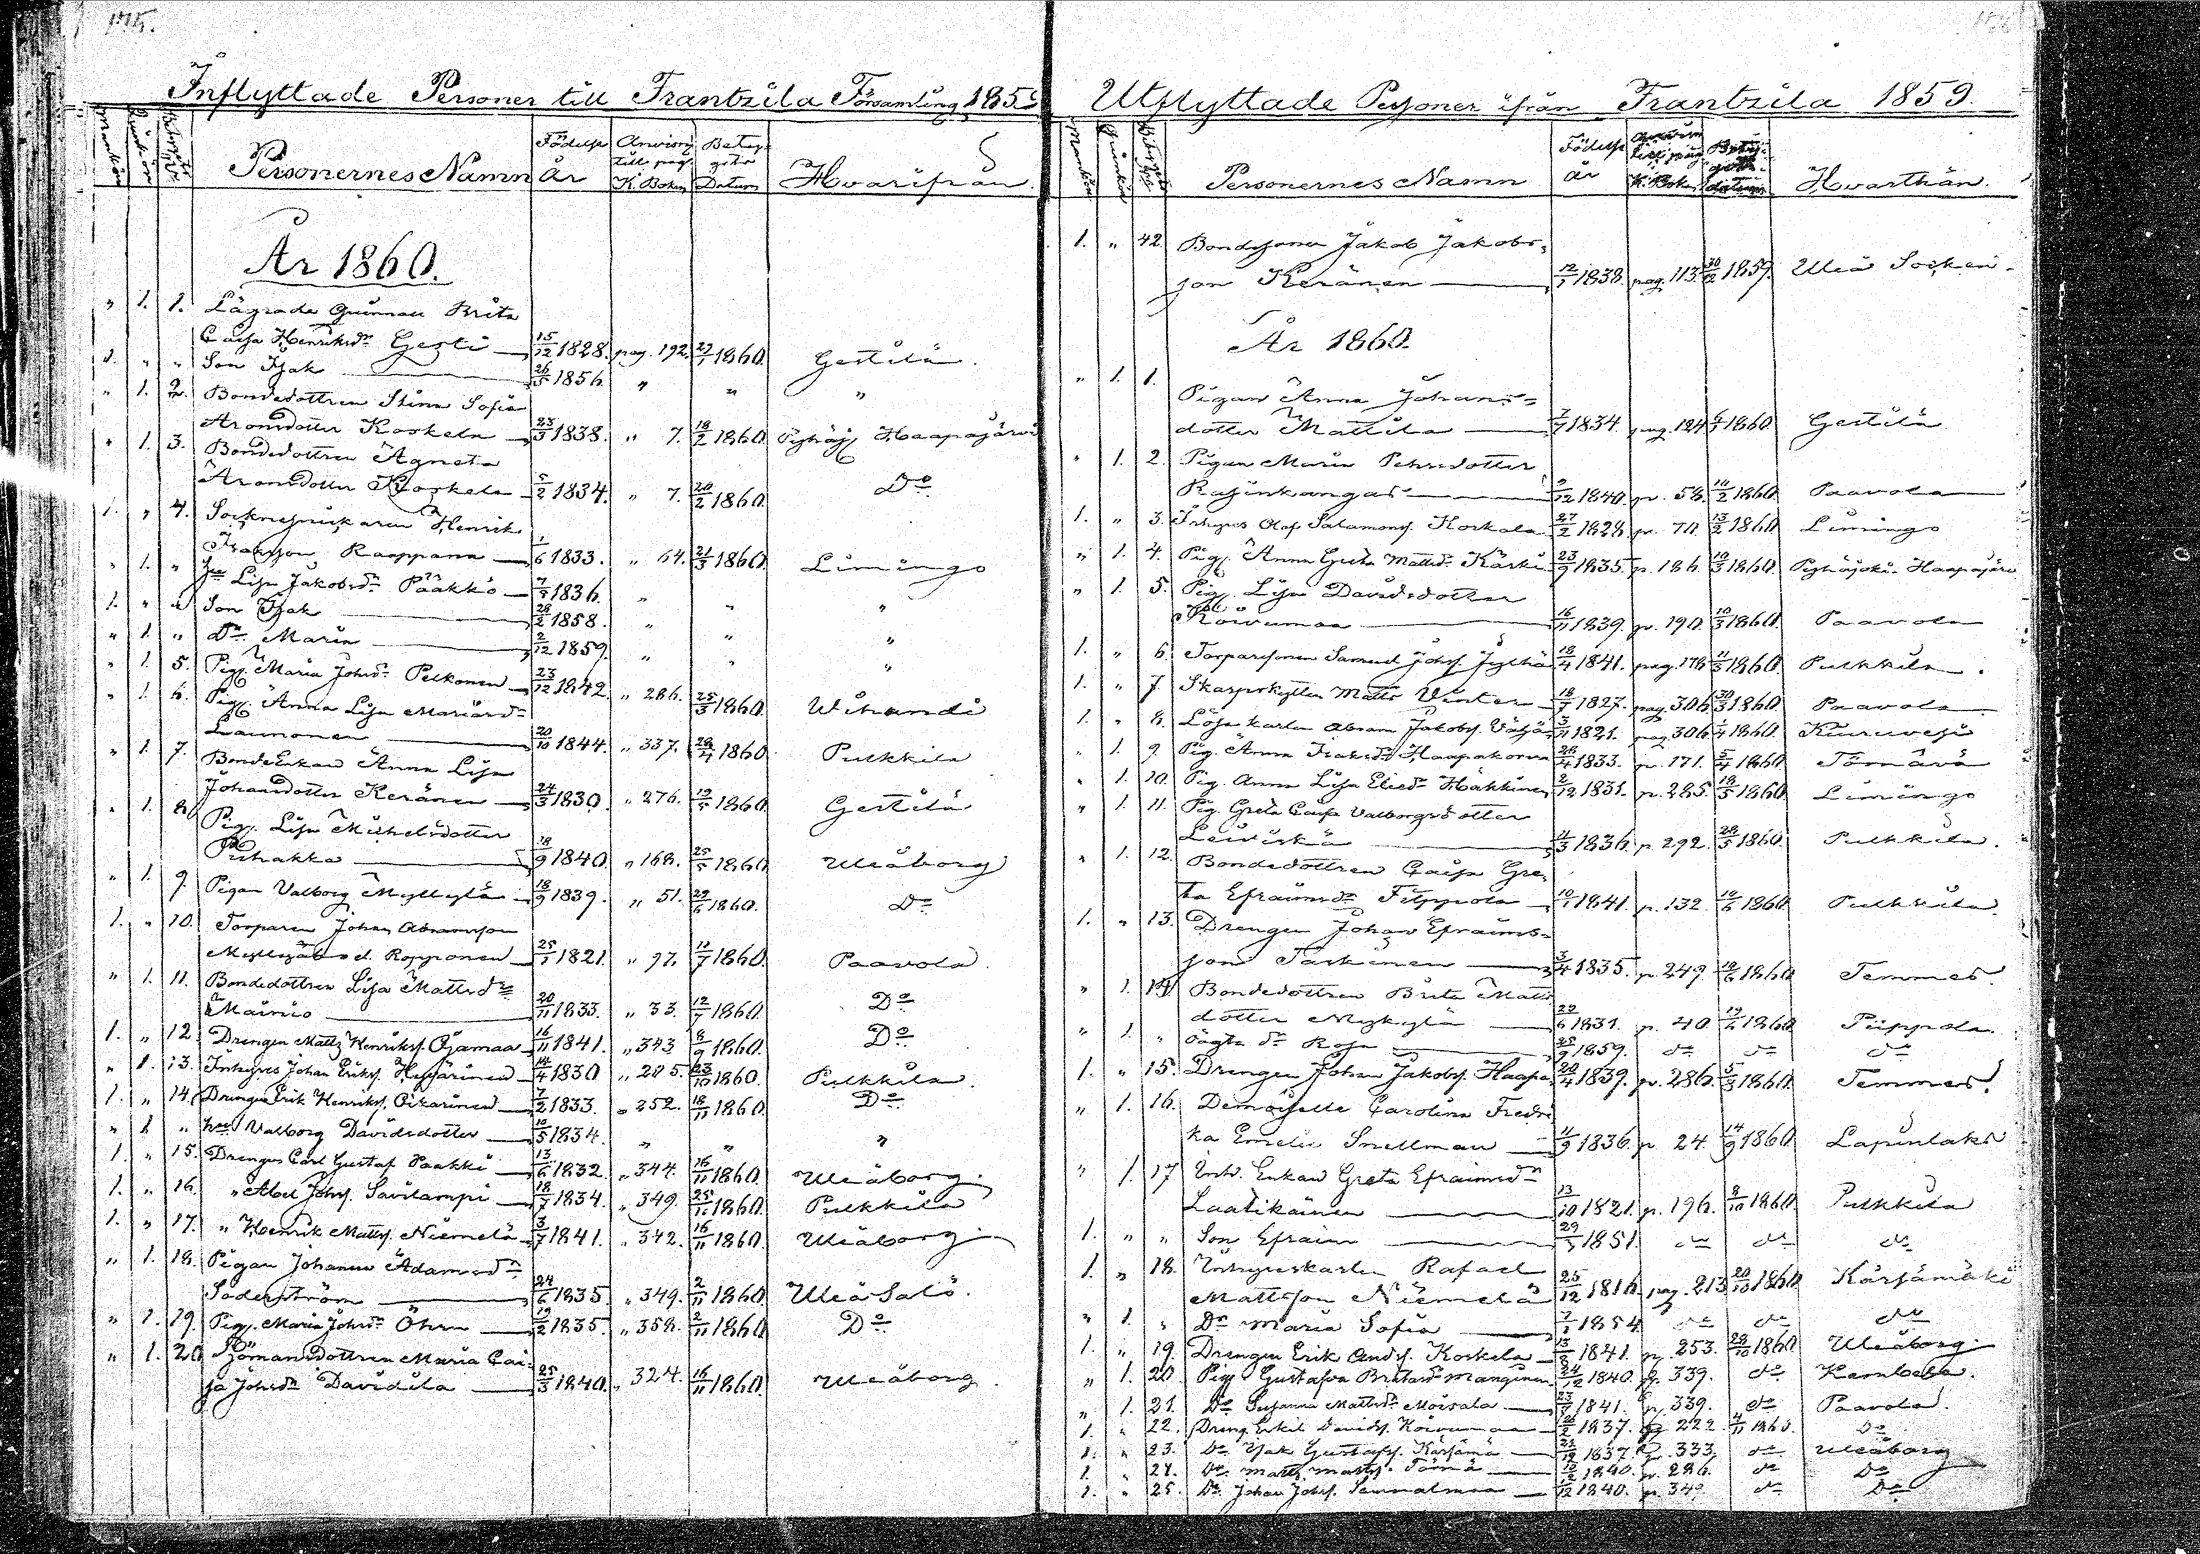 175.
Inflyttade Personer till Frantzila Församling 1859
Mankön Qvinkön Betygets No Personernes Namn Födelse år Anvisng till pag. K. Boken Betygets Datum Hvarifrån.
År 1860.
" 1. 1. Lägrade Quinnan Brita
Caisa Henriksdr Gesti 15/12 1828. pag. 192. 27/1 1860. Gestilä.
1. " " Son Isak 26/5 1856 " " "
" 1. 2. Bondedottren Stina Sofia
Aronsdotter Koskela 23/3 1838. " 7. 18/2 1860. Pyhäj. Haapajärvi
" 1. 3. Bondedottren Agneta
Aronsdotter Koskela 5/2 1834. " 7. 20/2 1860. Do
1. " 4. Sockneskräddaren Henrik
Isaksson Raappana 1/6 1833. " 64. 21/3 1860. Limingo
" 1. " hu Lisa Jakobsdr Pääkkö 7/5 1836. "
1. " " Son Isak 28/2 1858. " " "
" 1. " Dr Maria 2/12 1859. " " "
" 1. 5. Pig. Maria Johsdr Pelkonen 23/12 1842. " 286. 25/3 1860. Wihandi
" 1. 6. Pig. Anna Lisa Mariasdr
Launonen 20/10 1844. " 337. 28/4 1860. Pulkkila
" 1. 7. BondeEnkan Anna Lisa
Johansdotter Keränen 24/3 1830. " 276. 19/5 1860. Gestilä
" 1. 8. Pig. Lisa Michelsdotter
Puhakka 18/9 1840. " 168. 25/5 1860. Uleåborg
" 1. 9. Pigan Valborg Myllylä 18/9 1839. " 51. 22/6 1860. Do
1. " 10. Torparen Johan Abramsson
Myllylä l. Ropponen 25/1 1821. " 97. 11/7 1860. Paavola.
" 1. 11. Bondedottren Lisa Mattsdr
Mäinio 20/11 1833. " 33. 12/7 1860. Do
1. " 12. Drengen Matts Henrikss. Ojamaa 16/11 1841. " 343 8/9 1860. Do
" 1. 13. Inhyses Johan Erikss. Hyvärinen 14/4 1830 " 285. 23/10 1860. Pulkkila.
1. " 14. Drengen Erik Henrikss. Oikarinen 7/2 1833. " 252. 18/11 1860. Do
" 1 " hu Valborg Davidsdotter 10/5 1834. " " "
1. " 15. Drengen Carl Gustaf Paakki 13/6 1832. " 344. 16/11 1860. Uleåborg.
1. " 16. " Abel Johss. Savilampi 18/7 1834. " 349. 25/11 1860. Pulkkila
1. " 17. " Henrik Mattss. Niemelä 3/7 1841. " 342. 16/11 1860. Uleåborg
" 1. 18. Pigan Johanna Adamsdr
Söderström 24/6 1835. " 349. 2/11 1860. Uleå Salo.
" 1. 19. Pig. Maria Johsdr Öhrn 19/2 1835. " 358. 2/11 1860. Do
" 1. 20. Sjömansdottren Maria Cai-
sa Johsdr Davidila 25/3 1840. " 324. 16/11 1860. Uleåborg.
Utflyttade Personer ifrån Frantzila 1859.
Mankön Qvinkön Betygets No Personernes Namn Födelse år Anvisn till pag K. Boken Betygets datum Hvarthän.
1. " 42. Bondesonen Jakob Jakobs-
son Keränen 12/7 1838. pag. 113. 30/12 1859. Uleå Socken.
År 1860.
" 1. 1. Pigan Anna Johans-
dotter Mattila 7/7 1834. pag. 124 6/1 1860. Gestilä
" 1. 2. Pigan Maria Pehrsdotter
Rasinkangas 9/12 1840. p. 58. 10/2 1860. Paavola
1. " 3. Inhyses Olof Salomonss. Koskela 27/2 1828. p. 70. 13/2 1860. Limingo
" 1. 4. Pig. Anna Greta Mattsdr Kärki 23/9 1835. p. 186. 10/3 1860. Pyhäjoki Haapajärvi
" 1. 5. Pig. Lisa Davidsdotter
Koivumaa 16/11 1839. p. 190. 10/3 1860. Paavola
1. " 6. Torparesonen Samuel Johss. Jylhä 18/4 1841. pag. 178 11/3 1860. Pulkkila.
1. " 7. Skarpskytten Matts Vinter 18/7 1827. pag. 306 30/3 1860. Paavola.
1. " 8. Lösa karlen Abram Jakobss. Väljä 3/11 1821. pag. 306 1/4 1860. Kiuruvesi
" 1. 9. Pig. Anna Isaksdr Haapakorva 26/4 1833. p. 171. 5/4 1860. Törnävä
" 1. 10. Pig. Anna Lisa Eliedr Häkkinen 2/12 1831. p. 285. 18/5 1860. Limingo
" 1. 11. Pig. Greta Caisa Valborgsdotter
Leiviskä 11/3 1836. p. 292. 28/5 1860. Pulkkila.
" 1. 12. Bondedottren Caisa Gre-
ta Efraimsdr Filppola 10/1 1841. p. 132. 10/6 1860. Pulkkila.
1. " 13. Drengen Johan Efraims-
son Taskinen 3/4 1835. p. 249. 10/6 1860. Temmes.
" 1. 14. Bondedottren Brita Matts
dotter Mykylä 22/6 1831. p. 40. 19/6 1860. Piippola.
" 1. " Oägta dr Rosa 25/9 1859. do do do
1. " 15. Drengen Johan Jakobss. Haapa 20/4 1839. p. 286. 5/8 1860. Temmes.
" 1. 16. Demoiselle Carolina Fredri
ka Emelie Snellman 11/9 1836. p. 24. 14/9 1860. Lapinlaks
" 1. 17. Inh. Enkan Greta Efraimsdr
Laatikäinen 13/10 1821. p. 196. 8/10 1860. Pulkkila
1. " " Son Efraim 29/3 1851. do do do
1. " 18. Inhyseskarlen Rafael
Mattsson Niemelä 25/12 1816. pag. 213 20/10 1860. Kärsämäki
" 1. " Dr Maria Sofia 7/1 1854 do do do
1. " 19. Drengen Erik Andss. Koskela 13/8 1841. p. 253. 28/10 1860. Uleåborg.
" 1. 20. Pig. Gustafva Britasdr Manginen 24/12 1840. p. 339. do Kembele.
" 1. 21. Do Susanna Mattsdr Moisala 23/7 1841. p. 339. do Paavola.
1. " 22. Dreng Erkil Davidss. Koivumaa 26/2 1837. p. 222. 4/11 1860. Do
1. " 23. Do Isak Gustafss. Kärsämä 23/12 1837. p. 333. do Uleåborg
1. " 24. Do Matts Mattss. Törmä 10/12 1840. p. 286. do Do
1. " 25. Do Johan Johss. 1840. p. 349. do Do